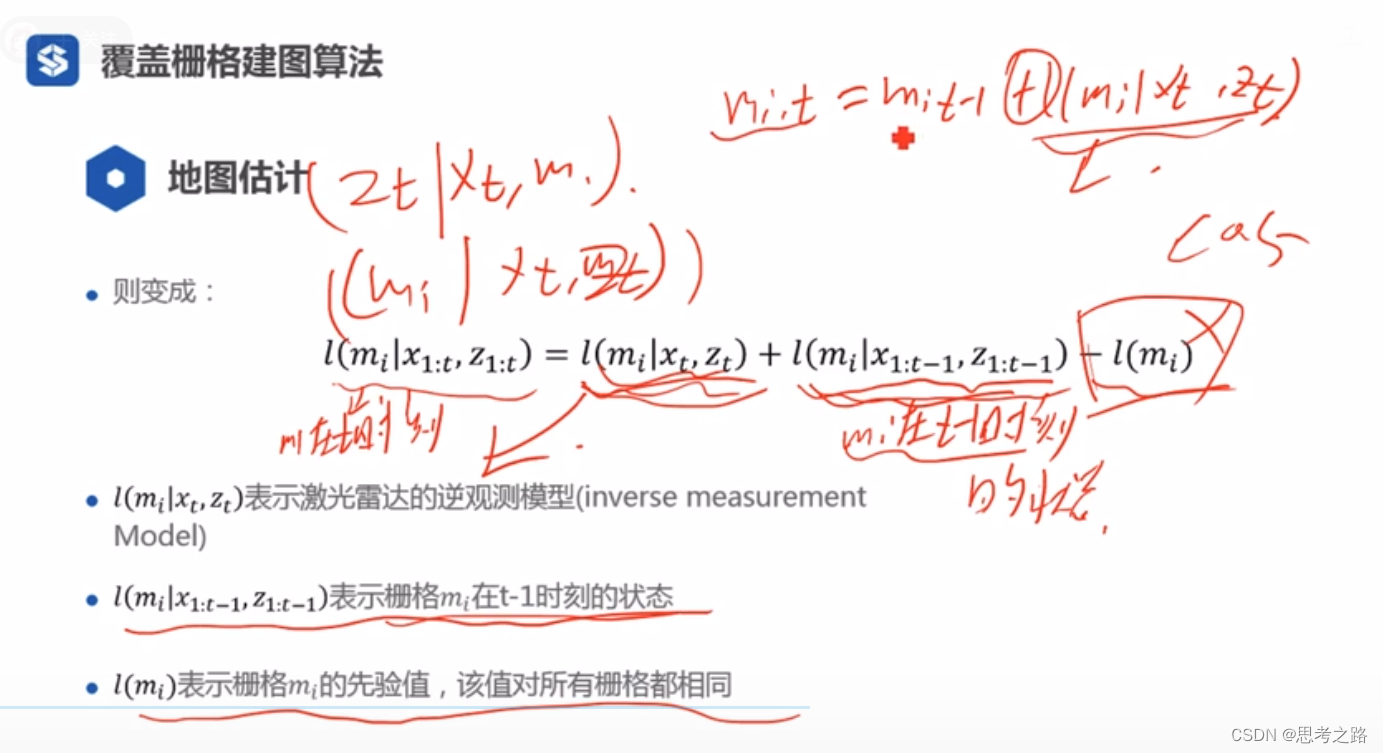 关注
覆盖栅格建图算法
mi,t = mi t-1 + l(mi|xt, zt)
地图估计
(zt|xt, mi).
(mi | xt, zt)
则变成：
l(mᵢ|x₁:ₜ, z₁:ₜ) = l(mᵢ|xₜ, zₜ) + l(mᵢ|x₁:ₜ₋₁, z₁:ₜ₋₁) − l(mᵢ)
mi在t时刻
mi在t-1时刻
的状态.
l(mᵢ|xₜ, zₜ)表示激光雷达的逆观测模型(inverse measurement
Model)
l(mᵢ|x₁:ₜ₋₁, z₁:ₜ₋₁)表示栅格mᵢ在t-1时刻的状态
l(mᵢ)表示栅格mᵢ的先验值，该值对所有栅格都相同
CSDN @思考之路